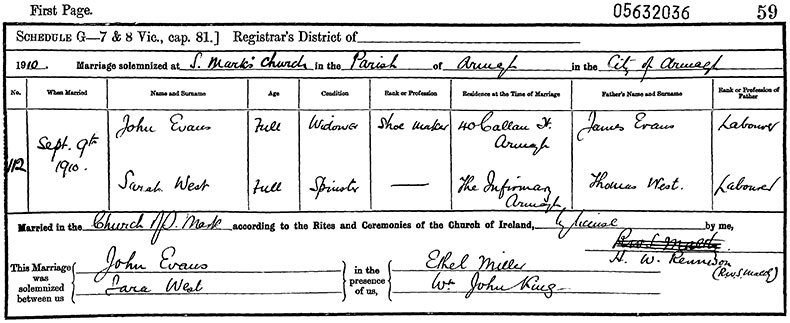 First Page. 05632036 59
SCHEDULE G—7 & 8 Vic., cap. 81.] Registrar's District of
1910. Marriage solemnized at S. Mark's Church in the Parish of Armagh in the City of Armagh
No. When Married Name and Surname Age Condition Rank or Profession Residence at the Time of Marriage Father's Name and Surname Rank or Profession of Father
112 Sept. 9th 1910. John Evans Full Widower Shoe Maker 40 Callan St. Armagh James Evans Labourer
Sarah West Full Spinster — The Infirmary Armagh Thomas West. Labourer
Married in the Church of S. Mark according to the Rites and Ceremonies of the Church of Ireland, by license by me,
This Marriage was solemnized between us John Evans in the presence of us, Ethel Miller H. W. Rennison
Sara West Wm John King